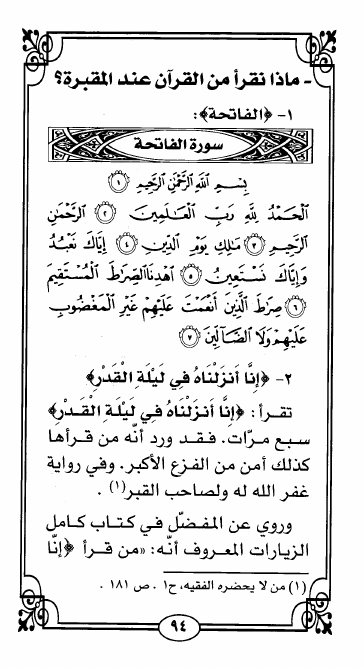 - ماذا نقرأ من القرآن عند المقبرة؟
١- ﴿الفاتحة﴾:
سورة الفاتحة
بِسْمِ اللَّهِ الرَّحْمَٰنِ الرَّحِيمِ ﴿١﴾
الْحَمْدُ لِلَّهِ رَبِّ الْعَالَمِينَ ﴿٢﴾ الرَّحْمَٰنِ
الرَّحِيمِ ﴿٣﴾ مَالِكِ يَوْمِ الدِّينِ ﴿٤﴾ إِيَّاكَ نَعْبُدُ
وَإِيَّاكَ نَسْتَعِينُ ﴿٥﴾ اهْدِنَا الصِّرَاطَ الْمُسْتَقِيمَ
﴿٦﴾ صِرَاطَ الَّذِينَ أَنْعَمْتَ عَلَيْهِمْ غَيْرِ الْمَغْضُوبِ
عَلَيْهِمْ وَلَا الضَّالِّينَ ﴿٧﴾
٢- ﴿إِنَّا أَنزَلْنَاهُ فِي لَيْلَةِ الْقَدْرِ﴾
تقرأ: ﴿إِنَّا أَنزَلْنَاهُ فِي لَيْلَةِ الْقَدْرِ﴾
سبع مرّات. فقد ورد أنّه من قرأها
كذلك أمن من الفزع الأكبر. وفي رواية
غفر الله له ولصاحب القبر(١).
وروي عن المفضّل في كتاب كامل
الزيارات المعروف أنّه: «من قرأ ﴿إِنَّا
(١) من لا يحضره الفقيه، ج١ . ص ١٨١ .
٩٤